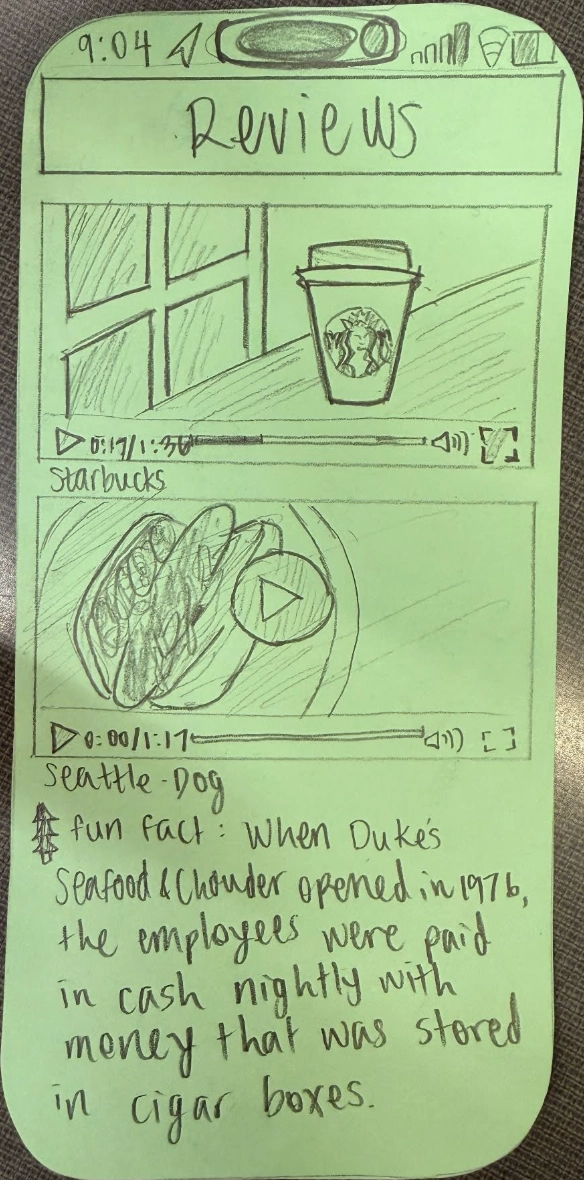 9:04
Reviews
0:17/1:36
Starbucks
0:00/1:17
Seattle-Dog
fun fact: When Duke's
Seafood & Chowder opened in 1976,
the employees were paid
in cash nightly with
money that was stored
in cigar boxes.